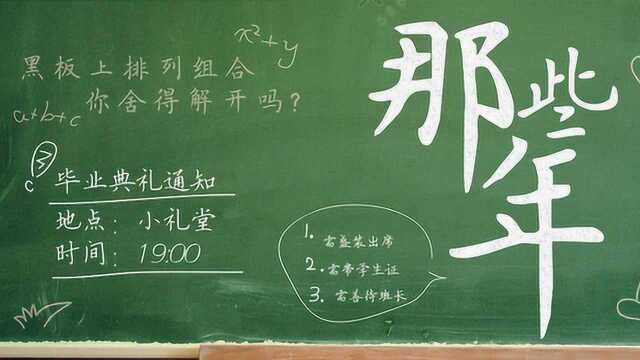 x²+y
黑板上排列组合
a+b+c
你舍得解开吗?
毕业典礼通知
地点: 小礼堂
时间: 19:00
1. 需盛装出席
2. 需带学生证
3. 需善待班长
那些年